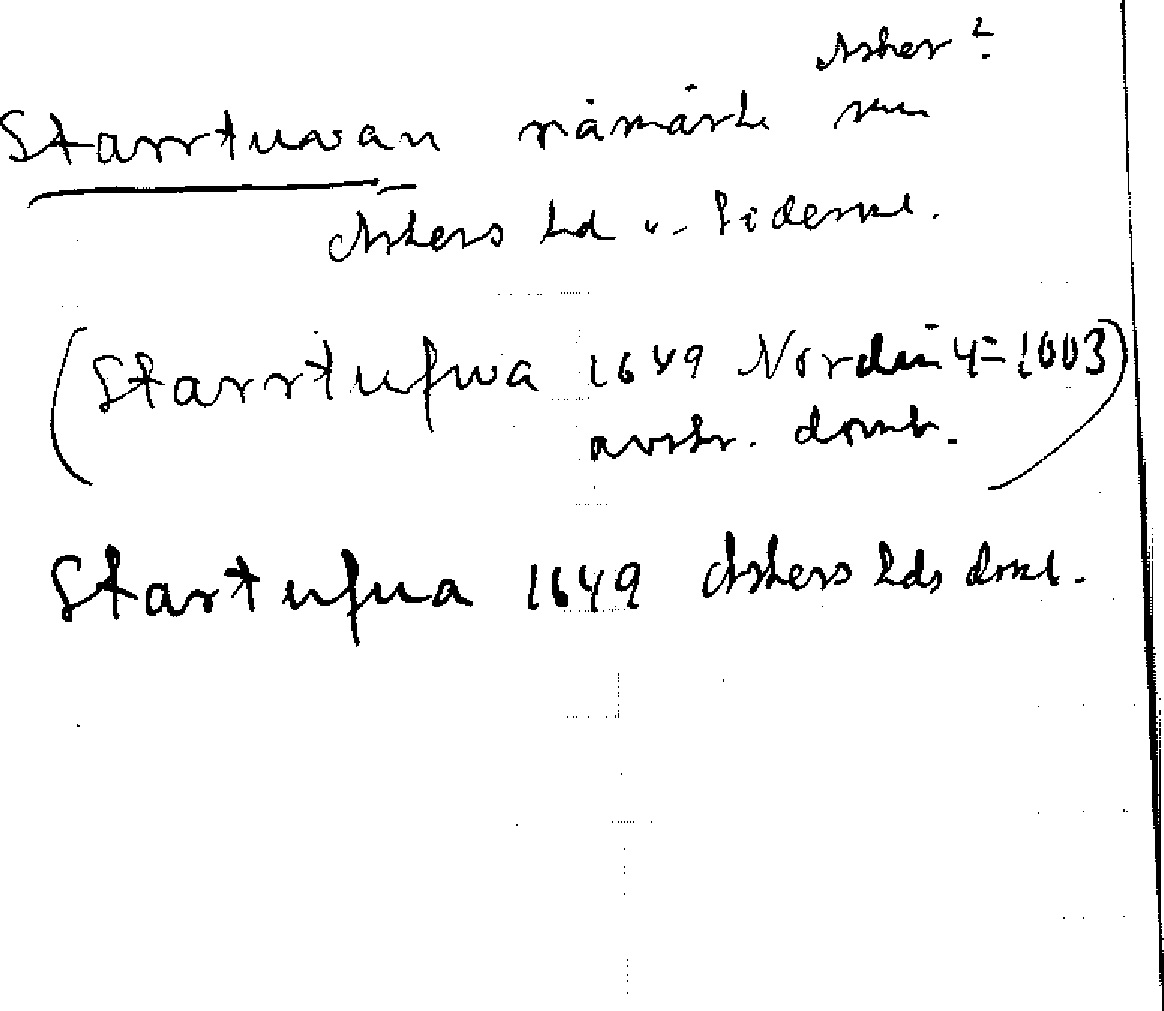 Askers ?
Starrtuvan råmärke mn
Askers hd o. Lidemd.
(Starrtufwa 1649 Nordin 4:o 1003)
avskr. domb.
Startufua 1649 Askers hds domb.